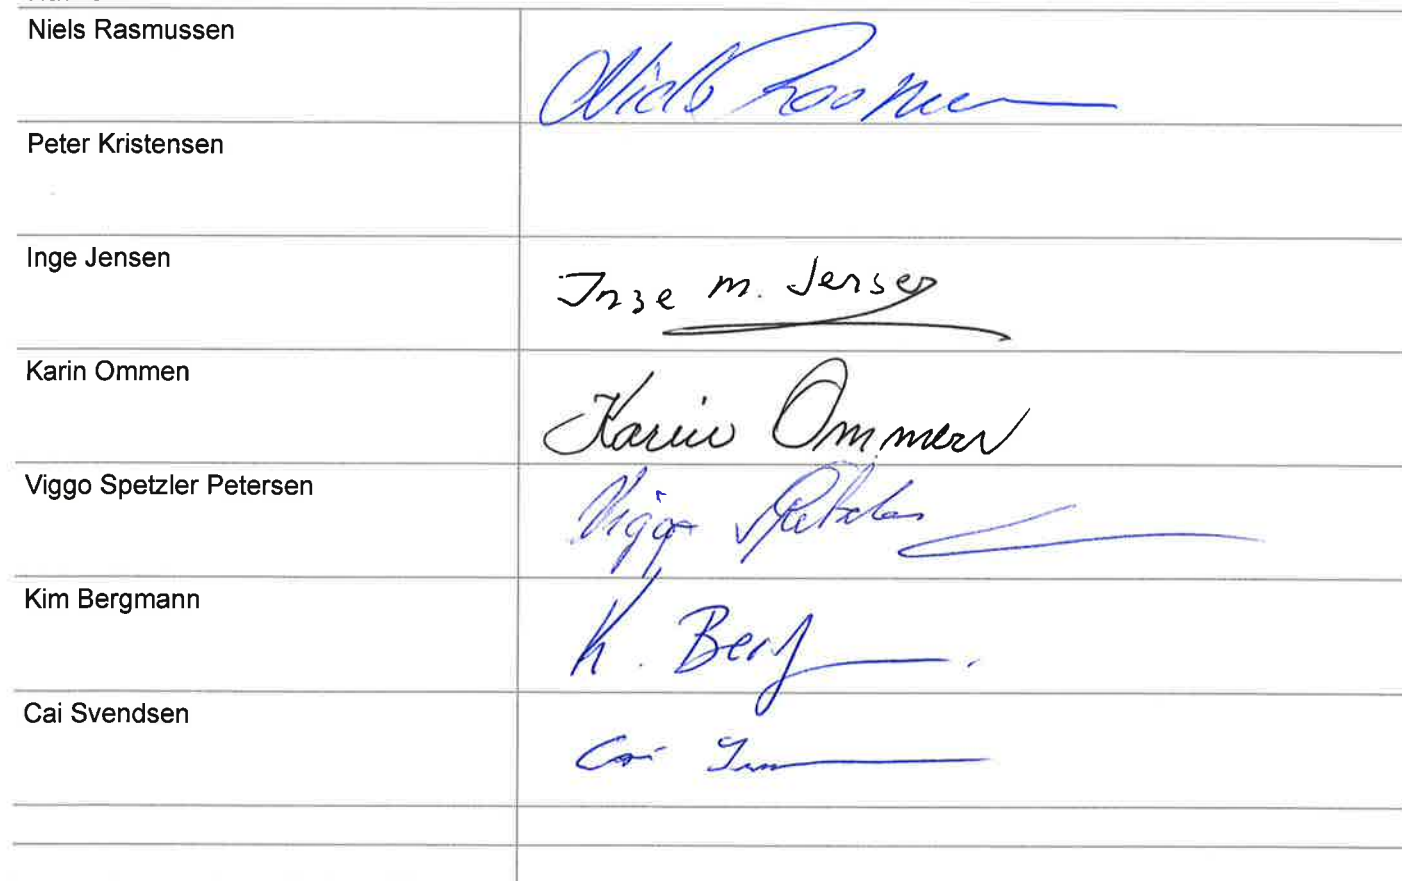 Niels Rasmussen
Peter Kristensen
Inge Jensen
Inge M. Jensen
Karin Ommen
Karin Ommen
Viggo Spetzler Petersen
Viggo
Kim Bergmann
K. Berg
Cai Svendsen
Cai